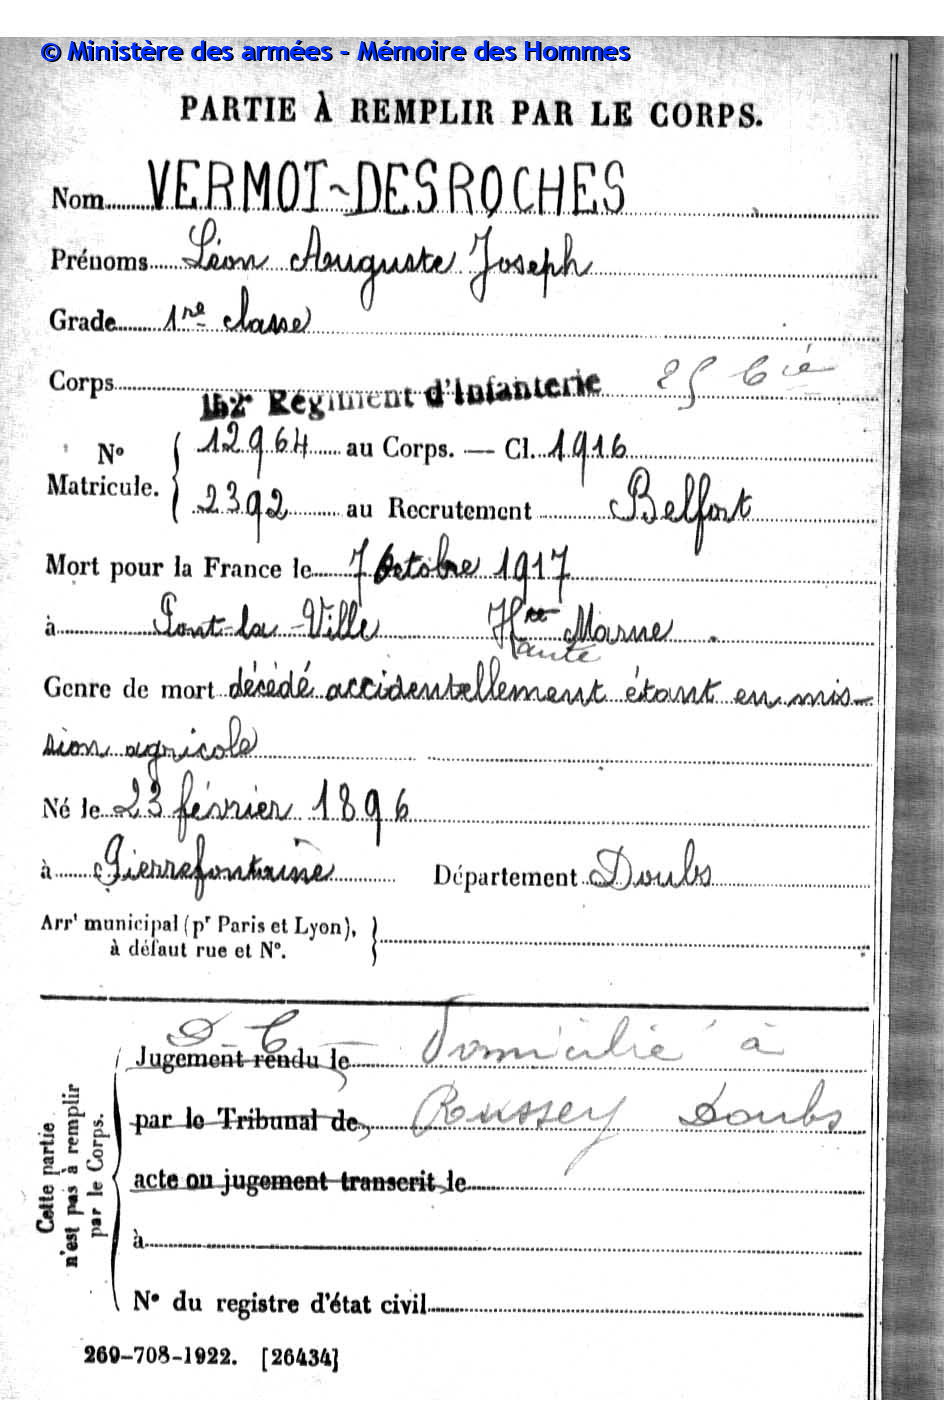 © Ministère des armées - Mémoire des Hommes
PARTIE À REMPLIR PAR LE CORPS.
Nom VERMOT-DESROCHES
Prénoms Léon Auguste Joseph
Grade 1re classe
Corps 152e Régiment d'Infanterie
N° Matricule. 12964 au Corps. — Cl. 1916
2392 au Recrutement Belfort
Mort pour la France le 7 Octobre 1917
à Pont-la-Ville Hte Marne
Haute
Genre de mort décédé accidentellement étant en mis-
sion agricole
Né le 23 février 1896
à Pierrefontaine Département Doubs
Arrt municipal (pr Paris et Lyon),
à défaut rue et N°.
Cette partie n'est pas à remplir par le Corps.
D.C.
Jugement rendu le Domicilié à
par le Tribunal de Russey Doubs
acte ou jugement transcrit le
à
N° du registre d'état civil
269-708-1922. [26434]